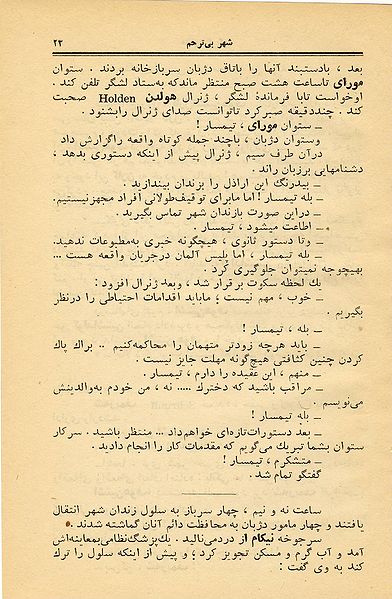 شهر بی‌ترحم ۲۳
بعد ، بادستبند آنها را باتاق دژبان سربازخانه بردند . ستوان
مورای تاساعت هشت صبح منتظر ماندکه به‌ستاد لشگر تلفن کند .
اوخواست تابا فرماندۀ لشگر ، ژنرال هولدن Holden صحبت
کند . چنددقیقه صبرکرد تاتوانست صدای ژنرال رابشنود .
ــ ستوان مورای ، تیمسار !
وستوان دژبان ، باچند جمله کوتاه واقعه راگزارش داد
درآن طرف سیم ، ژنرال پیش از اینکه دستوری بدهد .
دشنامهایی برزبان راند .
ــ بیدرنگ این اراذل را بزندان بیندازید .
ــ بله تیمسار ! اما مابرای توقیف‌طولانی افراد مجهزنیستیم.
ــ دراین صورت بازندان شهر تماس بگیرید .
ــ اطاعت میشود ، تیمسار .
ــ وتا دستور ثانوی ، هیچگونه خبری به‌مطبوعات ندهید.
ــ بله تیمسار ، اما پلیس آلمان درجریان واقعه هست ...
بهیچوجه نمیتوان جلوگیری کرد .
یك لحظه سکوت برقرار شد ، وبعد ژنرال افزود :
ــ خوب ، مهم نیست ؛ ماباید اقدامات احتیاطی را درنظر
بگیریم .
ــ بله ، تیمسار !
ــ باید هرچه زودتر متهمان را محاکمه‌کنیم .. براك پاك
کردن چنین کثافتی هیچ‌گونه مهلت جایز نیست .
ــ منهم ، این عقیده را دارم ، تیمسار .
ــ مراقب باشید که دخترك ..... نه ، من خودم به‌والدینش
می‌نویسم .
ــ بله تیمسار !
ــ بعد دستورات‌تازه‌ای خواهم‌داد ... منتظر باشید . سرکار
ستوان بشما تبریك می‌گویم که مقدمات کار را انجام دادید .
ــ متشکرم ، تیمسار !
گفتگو تمام شد .
ساعت نه و نیم ، چهار سرباز به سلول زندان شهر انتقال
یافتند و چهار مامور دژبان به محافظت دائم آنان گماشته شدند .
سرجوخه نیکام از دردمی‌نالید . یك‌پزشگ‌نظامی‌بمعاینه‌اش
آمد و آب گرم و مسکن تجویز کرد ؛ و پیش از اینکه سلول را ترك
کند به وی گفت :